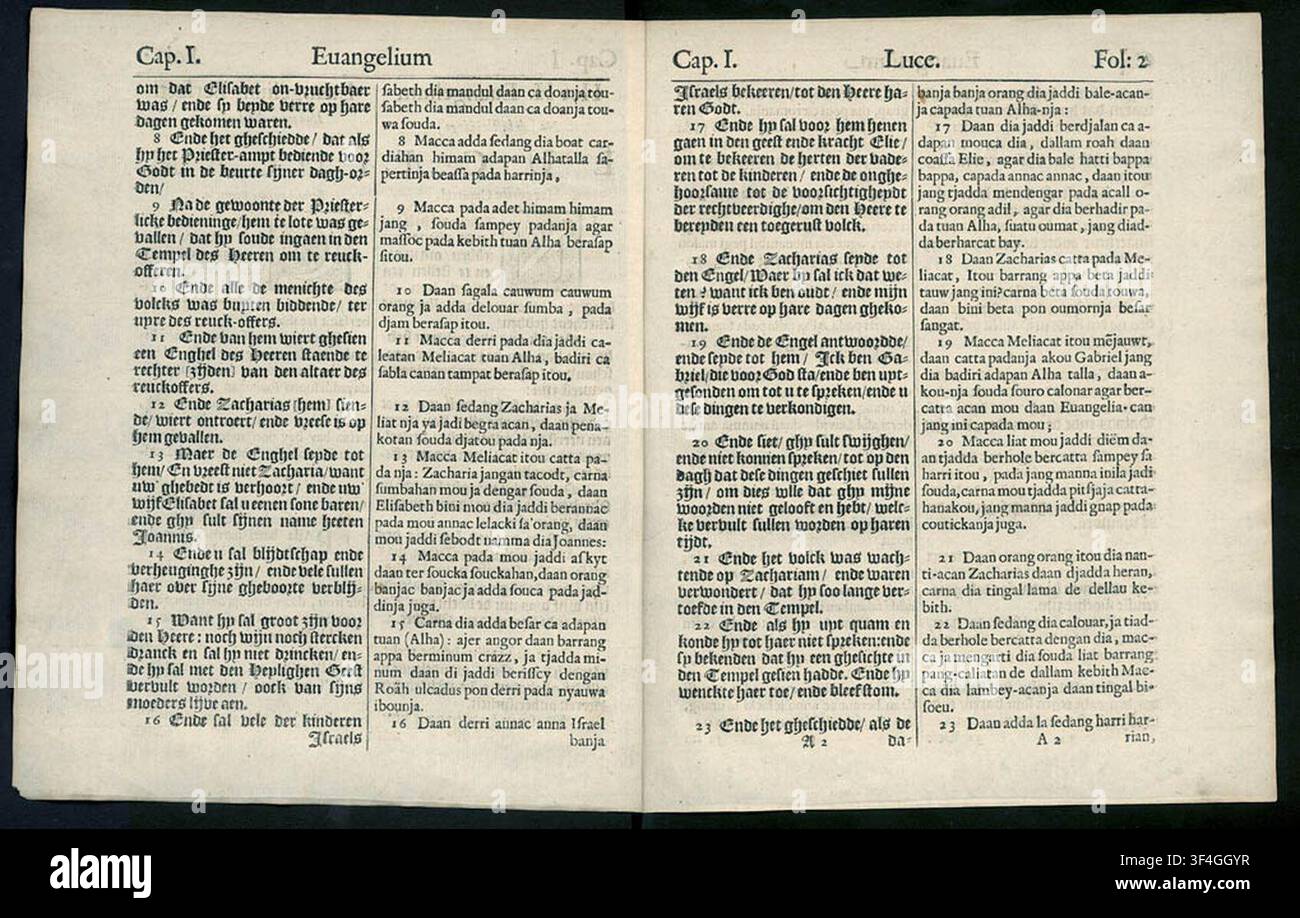 Cap. I. Euangelium
om dat Elisabet on-vruchtbaer
was / ende sy beyde verre op hare
dagen gekomen waren.
8 Ende het gheschiedde / dat als
hy het Priester-ampt bediende voor
Godt in de beurte sijner dagh-or-
den/
9 Na de gewoonte der Priester-
licke bedieninge/hem te lote was ge-
vallen / dat hy soude ingaen in den
Tempel des Heeren om te reuck-
offeren.
10 Ende alle de menichte des
volcks was buyten biddende/ ter
upre des reuck-offers.
11 Ende van hem wiert ghesien
een Enghel des Heeren staende te
rechter [zijden] van den altaer des
reuckoffers.
12 Ende Zacharias [hem] sien-
de/wiert ontroert/ende vreese is op
hem gevallen.
13 Maer de Enghel seyde tot
hem/ En vreest niet Zacharia/want
uw ghebedt is verhoort / ende uw
wijf Elisabet sal u eenen sone baren/
ende ghy sult sijnen name heeten
Joannis.
14 Ende u sal blijdtschap ende
verheuginghe zijn / ende vele sullen
haer over sijne gheboorte verblij-
den.
15 Want hy sal groot zijn voor
den Heere : noch wijn noch stercken
dranck en sal hy niet drincken/ en-
de hy sal met den Heylighen Geest
vervult worden / oock van sijns
moeders lijve aen.
16 Ende sal vele der kinderen
Israels
sabeth dia mandul daan ca doanja tou-
sabeth dia mandul daan ca doanja tou-
wa souda.
8 Macca adda sedang dia boat car-
diahan himam adapan Alhatalla sa-
pertinja beassa pada harrinja,
9 Macca pada adet himam himam
jang , souda sampey padanja agar
massoc pada kebith tuan Alha berasap
sitou.
10 Daan sagala cauwum cauwum
orang ja adda delouar sumba , pada
djam berasap itou.
11 Macca derri pada dia jaddi ca-
leatan Meliacat tuan Alha, badiri ca
sabla canan tampat berasap itou.
12 Daan sedang Zacharias ja Me-
liat nja ya jadi begra acan, daan pena-
kotan souda djatou pada nja.
13 Macca Meliacat itou catta pa-
da nja : Zacharia jangan tacodt, carna
sumbahan mou ja dengar souda, daan
Elisabeth bini mou dia jaddi berannac
pada mou annac lelacki sa'orang, daan
mou jaddi sebodt namma dia Joannes:
14 Macca pada mou jaddi askyt
daan ter soucka souckahan, daan orang
banjac banjac ja adda souca pada jad-
dinja juga.
15 Carna dia adda besar ca adapan
tuan (Alha) : ajer angor daan barrang
appa berminum crazz, ja tjadda mi-
num daan di jaddi berisscy dengan
Roäh ulcadus pon derri pada nyauwa
ibounja.
16 Daan derri annac anna Israel
banja
Cap. I. Luce. Fol: 2
Israels bekeeren/tot den Heere ha-
ren Godt.
17 Ende hy sal voor hem henen
gaen in den geest ende kracht Elie/
om te bekeeren de herten der vade-
ren tot de kinderen / ende de onghe-
hoorsame tot de voorsichtigheydt
der rechtveerdighe/om den Heere te
bereyden een toegerust volck.
18 Ende Zacharias seyde tot
den Engel/Waer by sal ick dat we-
ten ? want ick ben oudt / ende mijn
wijf is verre op hare dagen gheko-
men.
19 Ende de Engel antwoordde/
ende seyde tot hem / Ick ben Ga-
briel/die voor God sta/ende ben uyt-
gesonden om tot u te spreken/ende u
dese dingen te verkondigen.
20 Ende siet/ ghy sult swijghen/
ende niet konnen spreken/ tot op den
dagh dat dese dingen geschiet sullen
zijn / om dies wlle dat ghy mijne
woorden niet gelooft en hebt/ welc-
ke vervult sullen worden op haren
tijdt.
21 Ende het volck was wach-
tende op Zachariam / ende waren
verwondert / dat hy soo lange ver-
toefde in den Tempel.
22 Ende als hy uyt quam en
konde hy tot haer niet spreken:ende
sy bekenden dat hy een ghesichte in
den Tempel gesien hadde. Ende hy
wenckte haer toe/ ende bleef stom.
23 Ende het gheschiedde/ als de
A 2 da-
banja banja orang dia jaddi bale-acan-
ja capada tuan Alha-nja :
17 Daan dia jaddi berdjalan ca a-
dapan mouca dia, dallam roah daan
coassa Elie, agar dia bale hatti bappa
bappa, capada annac annac, daan itou
jang tjadda mendengar pada acall o-
rang orang adil, agar dia berhadir pa-
da tuan Alha, suatu oumat, jang diad-
da berharcat bay.
18 Daan Zacharias catta pada Me-
liacat, Itou barrang appa beta jaddi
tauw jang ini?carna beta souda touwa,
daan bini beta pon oumornja besar
sangat.
19 Macca Meliacat itou mējauwt,
daan catta padanja akou Gabriel jang
dia badiri adapan Alha talla, daan a-
kou-nja souda souro calonar agar ber-
catta acan mou daan Euangelia-can
jang ini capada mou;
20 Macca liat mou jaddi diëm da-
an tjadda berhole bercatta sampey sa
harri itou , pada jang manna inila jadi
souda,carna mou tjadda pitsjaja catta-
hanakou, jang manna jaddi gnap pada
coutickanja juga.
21 Daan orang orang itou dia nan-
ti-acan Zacharias daan djadda heran,
carna dia tingal lama de dellau ke-
bith.
22 Daan sedang dia calouar,ja tiad-
da berhole bercatta dengan dia, mac-
ca ja mengarti dia souda liat barrang
pang-caliatan de dallam kebith Mac-
ca dia lambey-acanja daan tingal bi-
soeu.
23 Daan adda la sedang harri har-
A 2 rian,
alamy
Image ID: 3F4GGYR
www.alamy.com